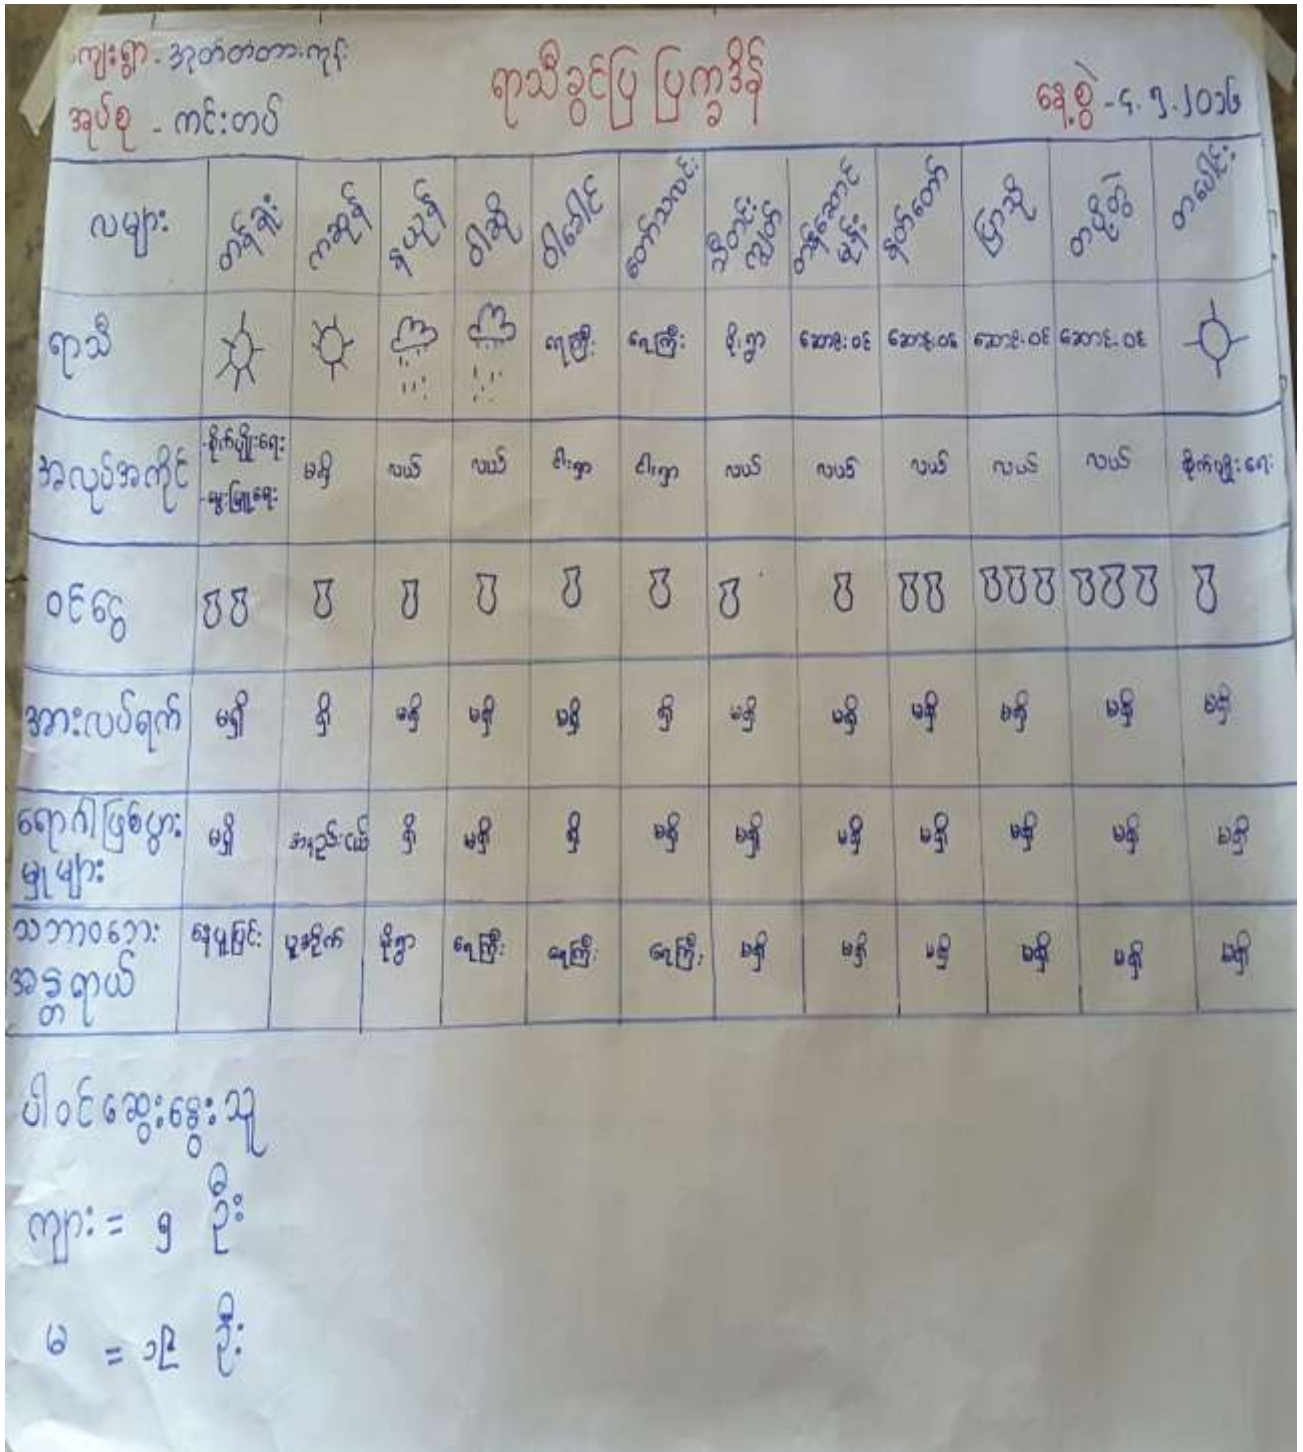 ကျေးရွာ - အုတ်တံတားကုန်း
ရာသီခွင်ပြ ပြက္ခဒိန်
အုပ်စု - ကင်းတပ်
နေ့စွဲ - ၄.၅.၂၀၁၆
လများ တန်ခူး ကဆုန် နယုန် ဝါဆို ဝါခေါင် တော်သလင်း သီတင်းကျွတ် တန်ဆောင်မုန်း နတ်တော် ပြာသို တပို့တွဲ တပေါင်း
ရာသီ ရေကြီး ရေကြီး မိုးရွာ ဆောင်းဝင် ဆောင်းဝင် ဆောင်းဝင် ဆောင်းဝင်
အလုပ်အကိုင် -စိုက်ပျိုးရေး -မွေးမြူရေး မရှိ လယ် လယ် ငါးရှာ ငါးရှာ လယ် လယ် လယ် လယ် လယ် စိုက်ပျိုးရေး
ဝင်ငွေ
အားလပ်ရက် မရှိ ရှိ မရှိ မရှိ မရှိ ရှိ မရှိ မရှိ မရှိ မရှိ မရှိ မရှိ
ရောဂါဖြစ်ပွား မရှိ အနည်းငယ် ရှိ မရှိ ရှိ မရှိ မရှိ မရှိ မရှိ မရှိ မရှိ မရှိ
မှုများ
သဘာဝဘေး နေပူပြင်း ပူအိုက် မိုးရွာ ရေကြီး ရေကြီး ရေကြီး မရှိ မရှိ မရှိ မရှိ မရှိ မရှိ
အန္တရာယ်
ပါဝင်ဆွေးနွေးသူ
ကျား = ၅ ဦး
မ = ၁၉ ဦး